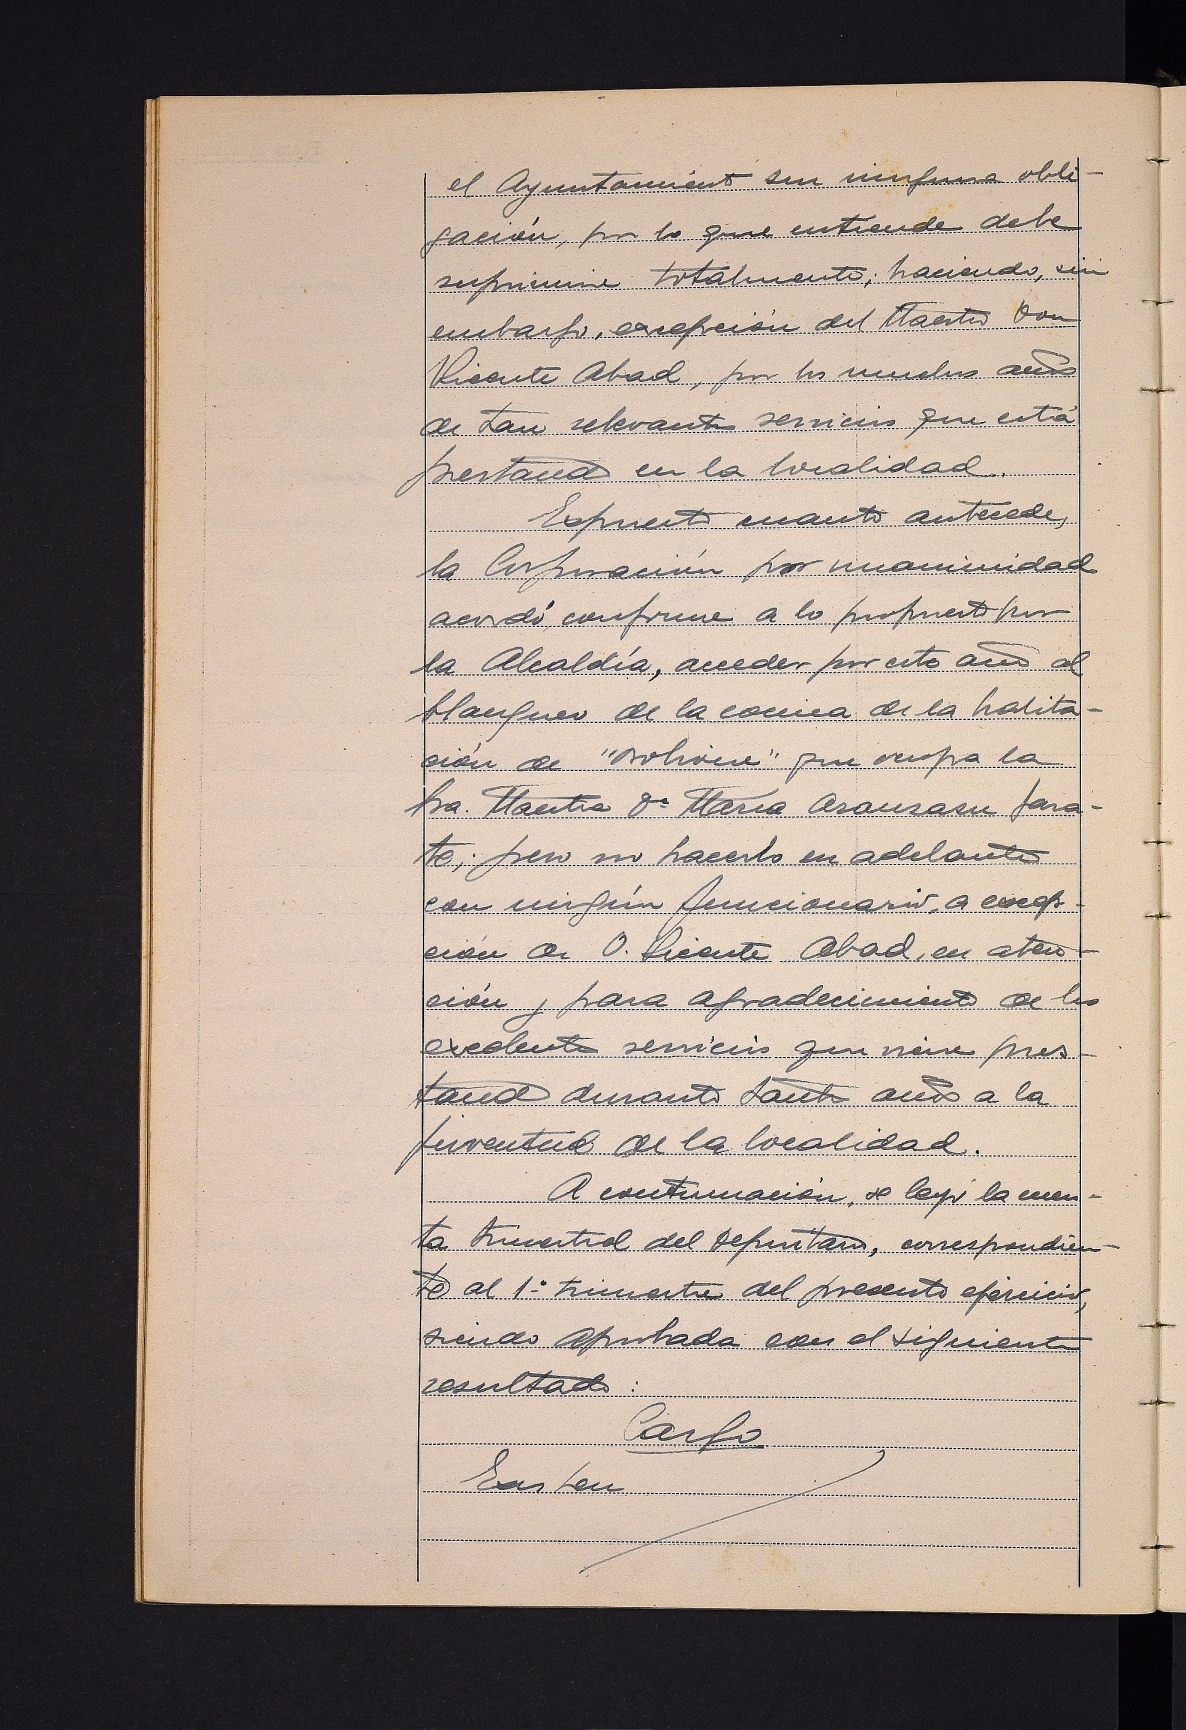 el Ayuntamiento sin ninguna obli-
gación, por lo que entiende debe
suprimirse totalmente; haciendo, sin
embargo, excepción del Maestro Don
Vicente Abad, por los muchos años
de tan relevantes servicios que está
prestando en la localidad.
Expuesto cuanto antecede,
la Corporación por unanimidad
acordó, conforme a lo propuesto por
la Alcaldía, acceder por este año al
blanqueo de la cocina de la habita-
ción de "Bolivine" que ocupa la
Sra. Maestra Dª María Aranzazu Zara-
te; pero no hacerlo en adelante
con ningún funcionario, a excep-
ción de D. Vicente Abad, en aten-
ción y para agradecimiento de los
excelentes servicios que viene pres-
tando durante tantos años a la
juventud de la localidad.
A continuación, se leyó la cuen-
ta trimestral del Depositario, correspondien-
te al 1º trimestre del presente ejercicio,
siendo aprobada con el siguiente
resultado:
Cargo